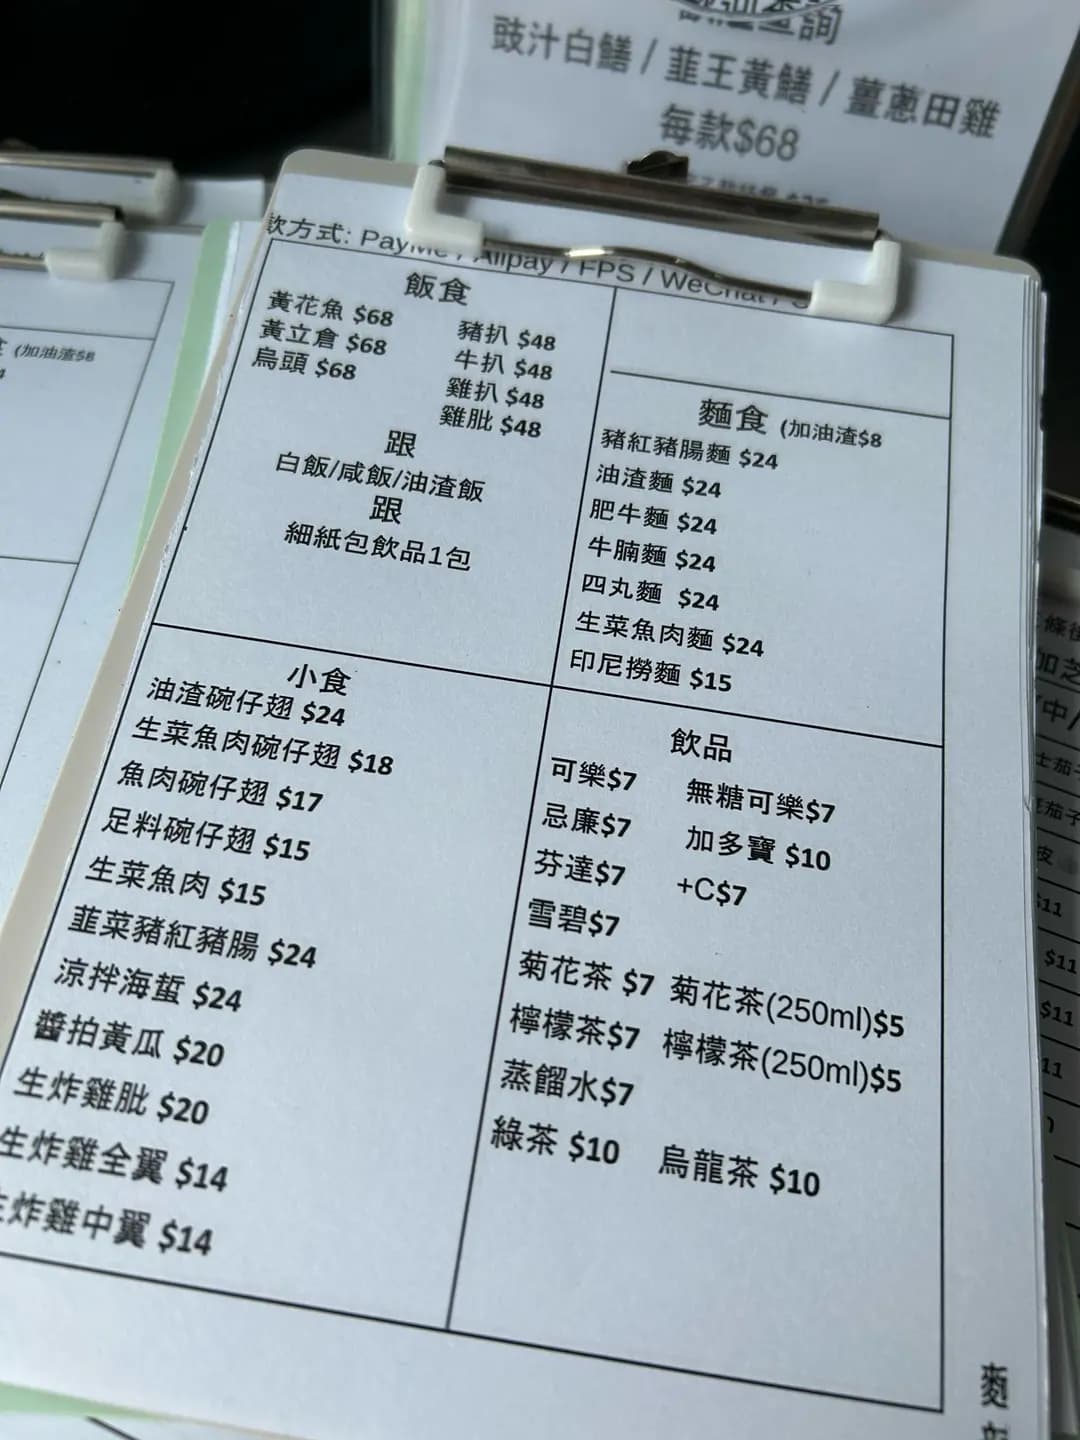 豉汁白鱔 / 韮王黃鱔 / 薑蔥田雞
每款$68
款方式: PayMe / Alipay / FPS / WeChat /
飯食
黃花魚 $68
黃立倉 $68
烏頭 $68
豬扒 $48
牛扒 $48
雞扒 $48
雞肶 $48
跟
白飯/咸飯/油渣飯
跟
細紙包飲品1包
麵食 (加油渣$8
豬紅豬腸麵 $24
油渣麵 $24
肥牛麵 $24
牛腩麵 $24
四丸麵 $24
生菜魚肉麵 $24
印尼撈麵 $15
小食
油渣碗仔翅 $24
生菜魚肉碗仔翅 $18
魚肉碗仔翅 $17
足料碗仔翅 $15
生菜魚肉 $15
韮菜豬紅豬腸 $24
涼拌海蜇 $24
醬拍黃瓜 $20
生炸雞肶 $20
生炸雞全翼 $14
生炸雞中翼 $14
飲品
可樂$7 無糖可樂$7
忌廉$7 加多寶 $10
芬達$7 +C$7
雪碧$7
菊花茶 $7 菊花茶(250ml)$5
檸檬茶$7 檸檬茶(250ml)$5
蒸餾水$7
綠茶 $10 烏龍茶 $10
(加油渣$8
加芝
$11
$11
$11
11